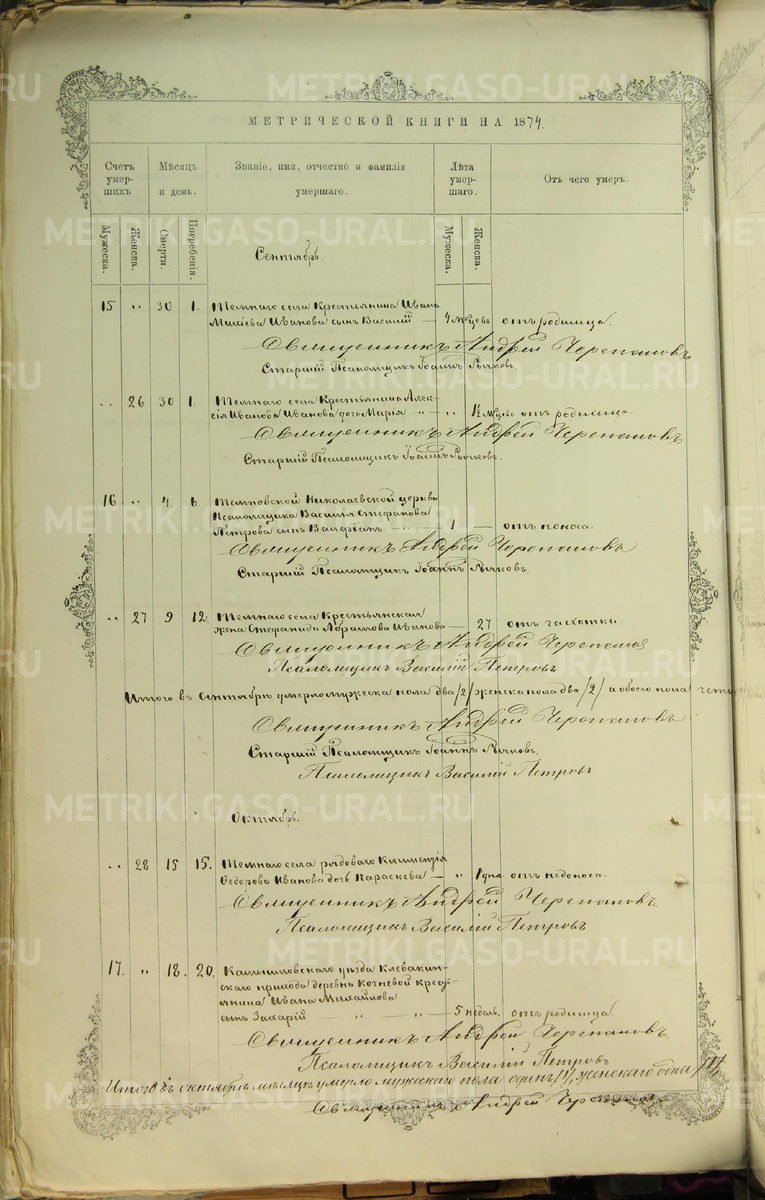 METRIKI.GASO-URAL.RU
МЕТРИЧЕСКОЙ КНИГИ НА 1874.
Счетъ умер- шихъ
Мѣсяцъ и день.
Званіе, имя, отчество и фамилія умершаго.
Лѣта умер- шаго.
Отъ чего умеръ.
Мужеска. Женска. Смерти. Погребенія. Мужеска. Женска.
Сентябрь.
15 " 30 1. Темнаго села Крестьянина Ивана
Иванова сынъ Василій — 4 мѣсцевъ отъ родимца.
Священникъ Андрей Черепановъ
Старшій Псаломщикъ Іоаннъ Рычковъ.
" 26 30 1. Темнаго села Крестьянина Алек-
сія Иванова Иванова дочь Марія " " отъ родимца.
Священникъ Андрей Черепановъ
Старшій Псаломщикъ Іоаннъ Рычковъ.
16 " 4. 6. Темновской Николаевской церкви
Псаломщика Василія Стефанова
Петрова сынъ Валеріанъ — 1 — отъ поноса.
Священникъ Андрей Черепановъ
Старшій Псаломщикъ Іоаннъ Рычковъ.
" 27 9 12. Темнаго села Крестьянская
жена Стефанида Абрамова Иванова — 27 отъ чахотки.
Священникъ Андрей Черепановъ
Псаломщикъ Василій Петровъ
Итого въ Сентябрѣ умерло мужеска пола два /2/ женска пола два /2/ а обоего пола четы
Священникъ Андрей Черепановъ
Старшій Псаломщикъ Іоаннъ Рычковъ.
Псаломщикъ Василій Петровъ
Октябрь.
" 28 15 15. Темнаго села рядоваго Климентія
Ѳедорова Иванова дочь Параскева — " 1 дня отъ недоноса.
Священникъ Андрей Черепановъ
Псаломщикъ Василій Петровъ
17. " 18. 20. Камышловскаго уѣзда Клевакин-
скаго прихода деревни Кочневой кресть-
янина Ивана Михайлова
сынъ Захарій — " — " — 5 недѣль. отъ родимца.
Священникъ Андрей Черепановъ
Псаломщикъ Василій Петровъ
Итого въ октябрѣ мѣсяцѣ умерло мужескаго пола одинъ /1/, женскаго одна /1/
Священникъ Андрей Черепановъ.